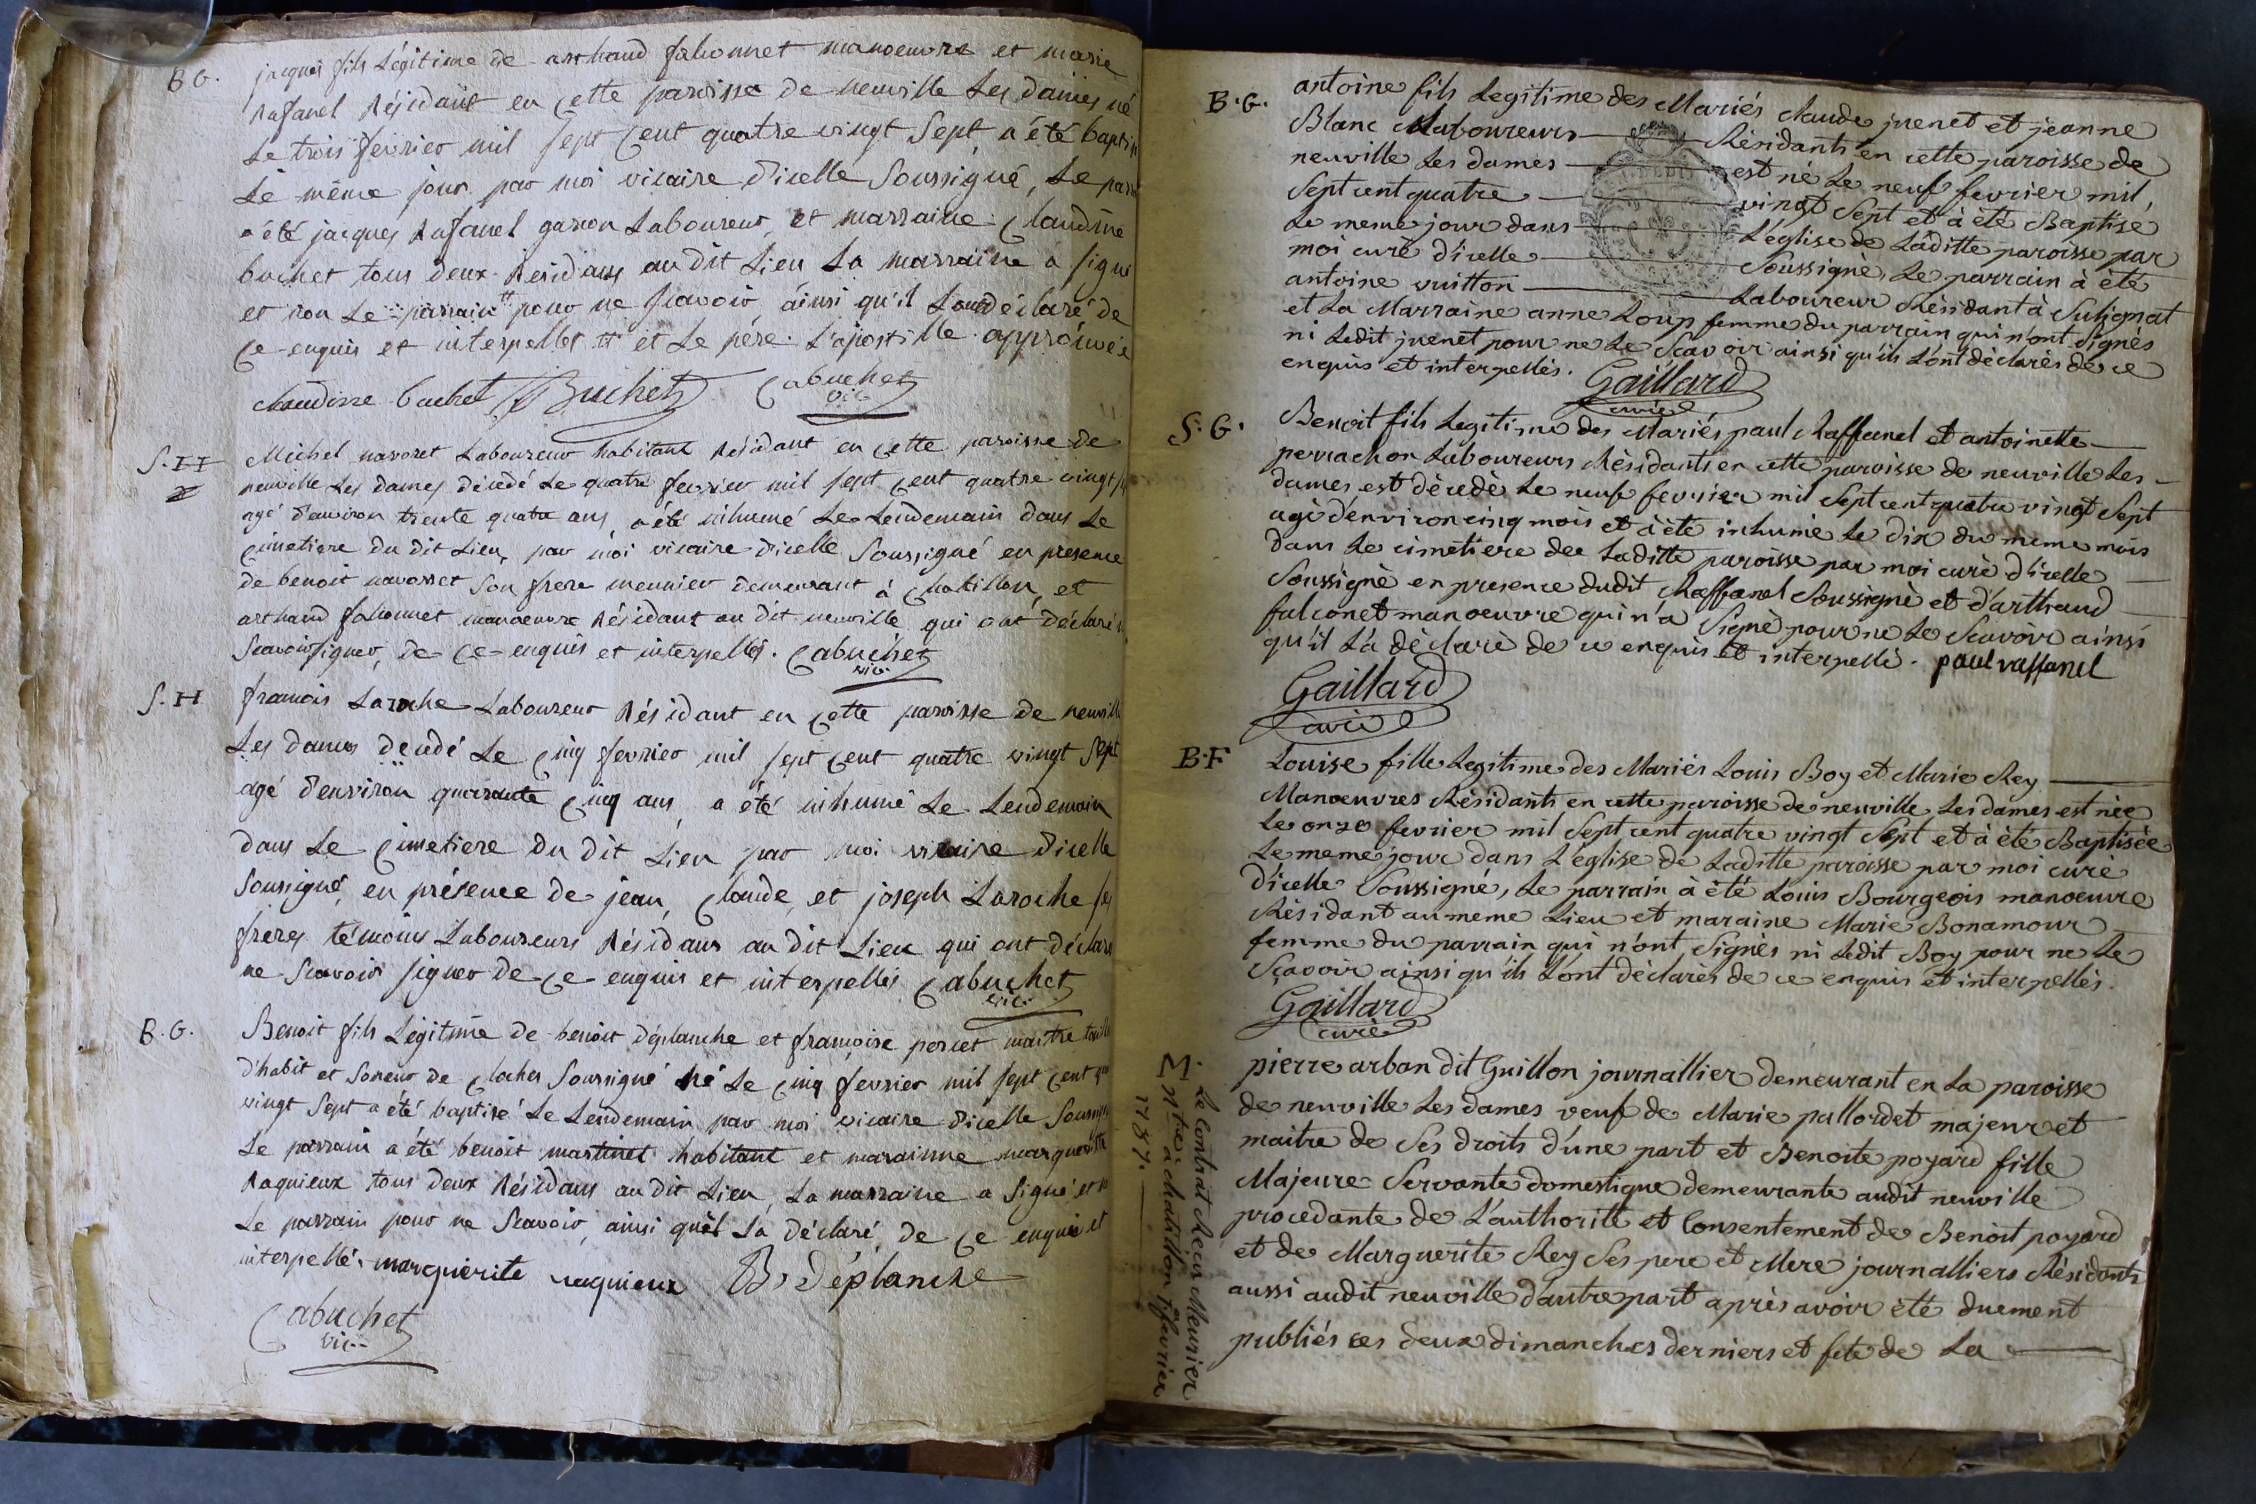 B G.
jacques fils Légitime de arthaud falconnet manoeuvre et marie
Rafanel Résidant en cette paroisse de neuville Les dames né
Le trois fevrier mil sept cent quatre vingt sept, a été baptisé
Le même jour par moi vicaire d'icelle soussigné, Le
a été jacques Rafanel garson Laboureur, et marraine Claudine
buchet tous deux Résidans au dit Lieu La marraine a signé
et non Le parrain tt pour ne scavoir, ainsi qu'il déclaré de
ce enquis et interpellés tt et Le père. L'apostille approuvée
claudine buchet Buchet Cabuchet
vic.
S. H
Michel navoret Laboureur habitant Résidant en cette paroisse de
neuville Les dames, décédé Le quatre fevrier mil sept cent quatre vingt
agé d'environ trente quatre ans, a été inhumé Le Lendemain dans Le
cimetiere du dit Lieu, par moi vicaire d'icelle soussigné en presence
de benoit navoret son frere meunier demeurant à Chatillon, et
arthaud falconnet manoeuvre Résidant au dit neuville qui ont déclaré
scavoir signer, de ce enquis et interpellés. Cabuchet
vic.
S. H
francois Laroche Laboureur Résidant en cette paroisse de neuville
Les dames décédé Le cinq fevrier mil sept cent quatre vingt sept
agé d'environ quarante cinq ans, a été inhumé Le Lendemain
dans Le cimetiere du dit Lieu par moi vicaire d'icelle
soussigné, en présence de jean, claude, et joseph Laroche ses
freres témoins Laboureurs Résidans au dit Lieu qui ont déclaré
ne scavoir signer de ce enquis et interpellés Cabuchet
vic.
B. G.
Benoit fils Légitime de benoit déplanche et françoise percet maitre
d'habit et soneur de cloches soussigné né Le cinq fevrier mil sept cent
vingt sept a été baptisé Le Lendemain par moi vicaire d'icelle
Le parrain a été benoit martinet habitant et maraine marguerite
Raquieux tous deux Résidans au dit Lieu, La marraine a signé et
Le parrain pour ne scavoir, ainsi qu'il L'a déclaré, de ce enquis et
interpellé. marguerite raquieux B. Déplanche
Cabuchet
vic.
B. G.
antoine fils Legitime des Mariés claude juenet et jeanne
Blanc Laboureurs Résidants en cette paroisse de
neuville Les dames est né Le neuf fevrier mil
Sept cent quatre vingt Sept et à été Baptisé
Le meme jour dans L'église de Laditte paroisse par
moi curé d'icelle Soussigné, Le parrain à été
antoine vuitton Laboureur Résidant à Sulignat
et La Marraine anne Loup femme du parrain qui n'ont signés
ni Ledit juenet pour ne Le Scavoir ainsi qu'ils L'ont déclarés de ce
enquis et interpellés. Gaillard
curé
S. G.
Benoit fils Legitime des Mariés paul Raffanel et antoinette
perrachon Laboureurs Résidants en cette paroisse de neuville Les
dames est décedé Le neuf fevrier mil Sept cent quatre vingt Sept
agé d'environ cinq mois et à été inhumé Le dix du meme mois
dans Le cimetiere de Laditte paroisse par moi curé d'icelle
Soussigné en presence dudit Raffanel Soussigné et d'arthaud
falconet manoeuvre qui n'a Signé pour ne Le Scavoir ainsi
qu'il L'a déclaré de ce enquis et interpellé. paul raffanel
Gaillard
curé
B. F
Louise fille Legitime des Mariés Louis Boy et Marie Rey
Manoeuvres Résidants en cette paroisse de neuville Les dames est née
Le onze fevrier mil Sept cent quatre vingt Sept et à été Baptisée
Le meme jour dans L'église de Laditte paroisse par moi curé
d'icelle Soussigné, Le parrain à été Louis Bourgeois manoeuvre
Résidant au meme Lieu et maraine Marie Bonamour
femme du parrain qui n'ont Signés ni Ledit Boy pour ne Le
Scavoir ainsi qu'ils L'ont déclarés de ce enquis et interpellés.
Gaillard
curé
M.
Le Contrat Recu Meunier
à chatillon fevrier
1787.
pierre arban dit Guillon journallier demeurant en La paroisse
de neuville Les dames veuf de Marie pallordet majeur et
maitre de Ses droits d'une part et Benoite poyard fille
Majeure Servante domestique demeurante audit neuville
procedante de L'authorité et Consentement de Benoit poyard
et de Marguerite Rey Ses pere et Mere journalliers Résidants
aussi audit neuville d'autre part après avoir été duement
publiés ces deux dimanches derniers et fete de La